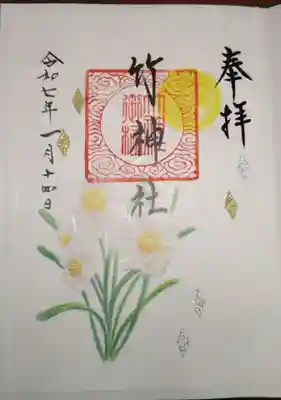 奉拝
竹神社
令和七年一月十四日